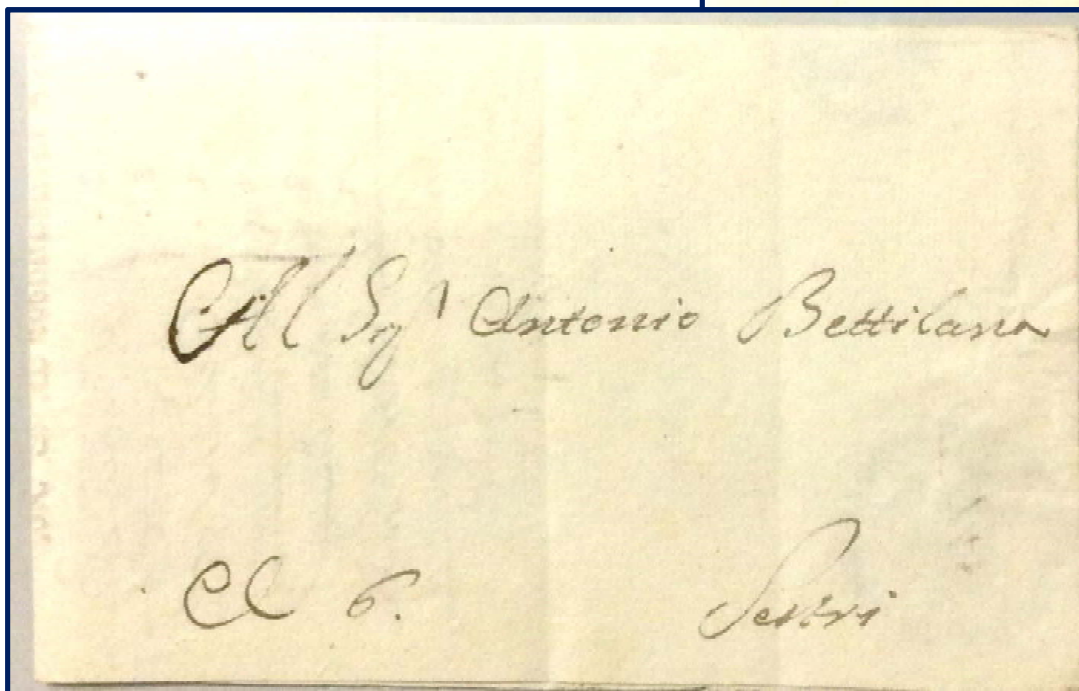 All Sig.r Antonio Bettilana
Cl 6. Sestri